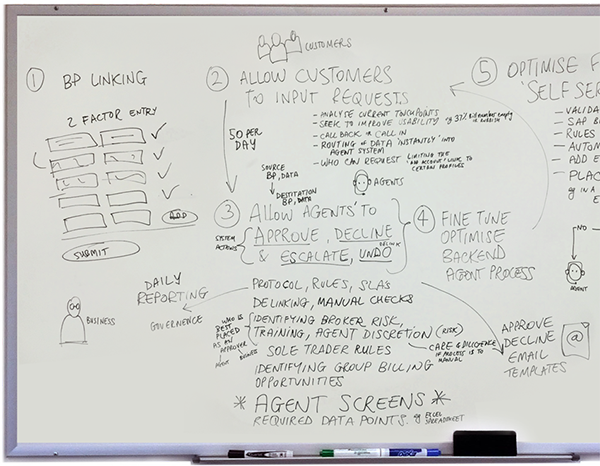 CUSTOMERS
1 BP LINKING
2 FACTOR ENTRY
ADD
SUBMIT
2 ALLOW CUSTOMERS
TO INPUT REQUESTS
- ANALYSE CURRENT TOUCHPOINTS
- SEEK TO IMPROVE USABILITY eg 37% empty
- CALL BACK CALL IN
- ROUTING OF DATA 'INSTANTLY' INTO
AGENT SYSTEM
- WHO CAN REQUEST LIMITING THE
'AN ACCOUNT' LINK TO
CERTAIN PROFILES
50 PER
DAY
SOURCE
BP, DATA
DESTITATION
BP, DATA
AGENTS
3 ALLOW AGENTS' TO
APPROVE, DECLINE
& ESCALATE, UNDO
DELINK
SYSTEM
ACTIONS
4 FINE TUNE
OPTIMISE
BACKEND
AGENT PROCESS
5 OPTIMISE F
'SELF SER
- VALIDA
- SAP B
- RULES
- AUTOM
- ADD E
- PLAC
eg IN A
E
NO
AGENT
DAILY
REPORTING
GOVERNENCE
BUSINESS
PROTOCOL, RULES, SLAS
DELINKING, MANUAL CHECKS
WHO IS
BEST
PLACED
AS AN
APPROVER
IDENTIFYING BROKER RISK,
TRAINING, AGENT DISCRETION (RISK)
SOLE TRADER RULES
IDENTIFYING GROUP BILLING
OPPORTUNITIES
CARE & DILLIGENCE
IF PROCESS IS TO
MANUAL
APPROVE
DECLINE
EMAIL
TEMPLATES
@
* AGENT SCREENS *
REQUIRED DATA POINTS. eg EXCEL
SPREADSHEET